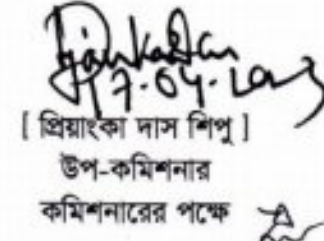 17.04.2023
[ প্রিয়াংকা দাস শিপু ]
উপ-কমিশনার
কমিশনারের পক্ষে